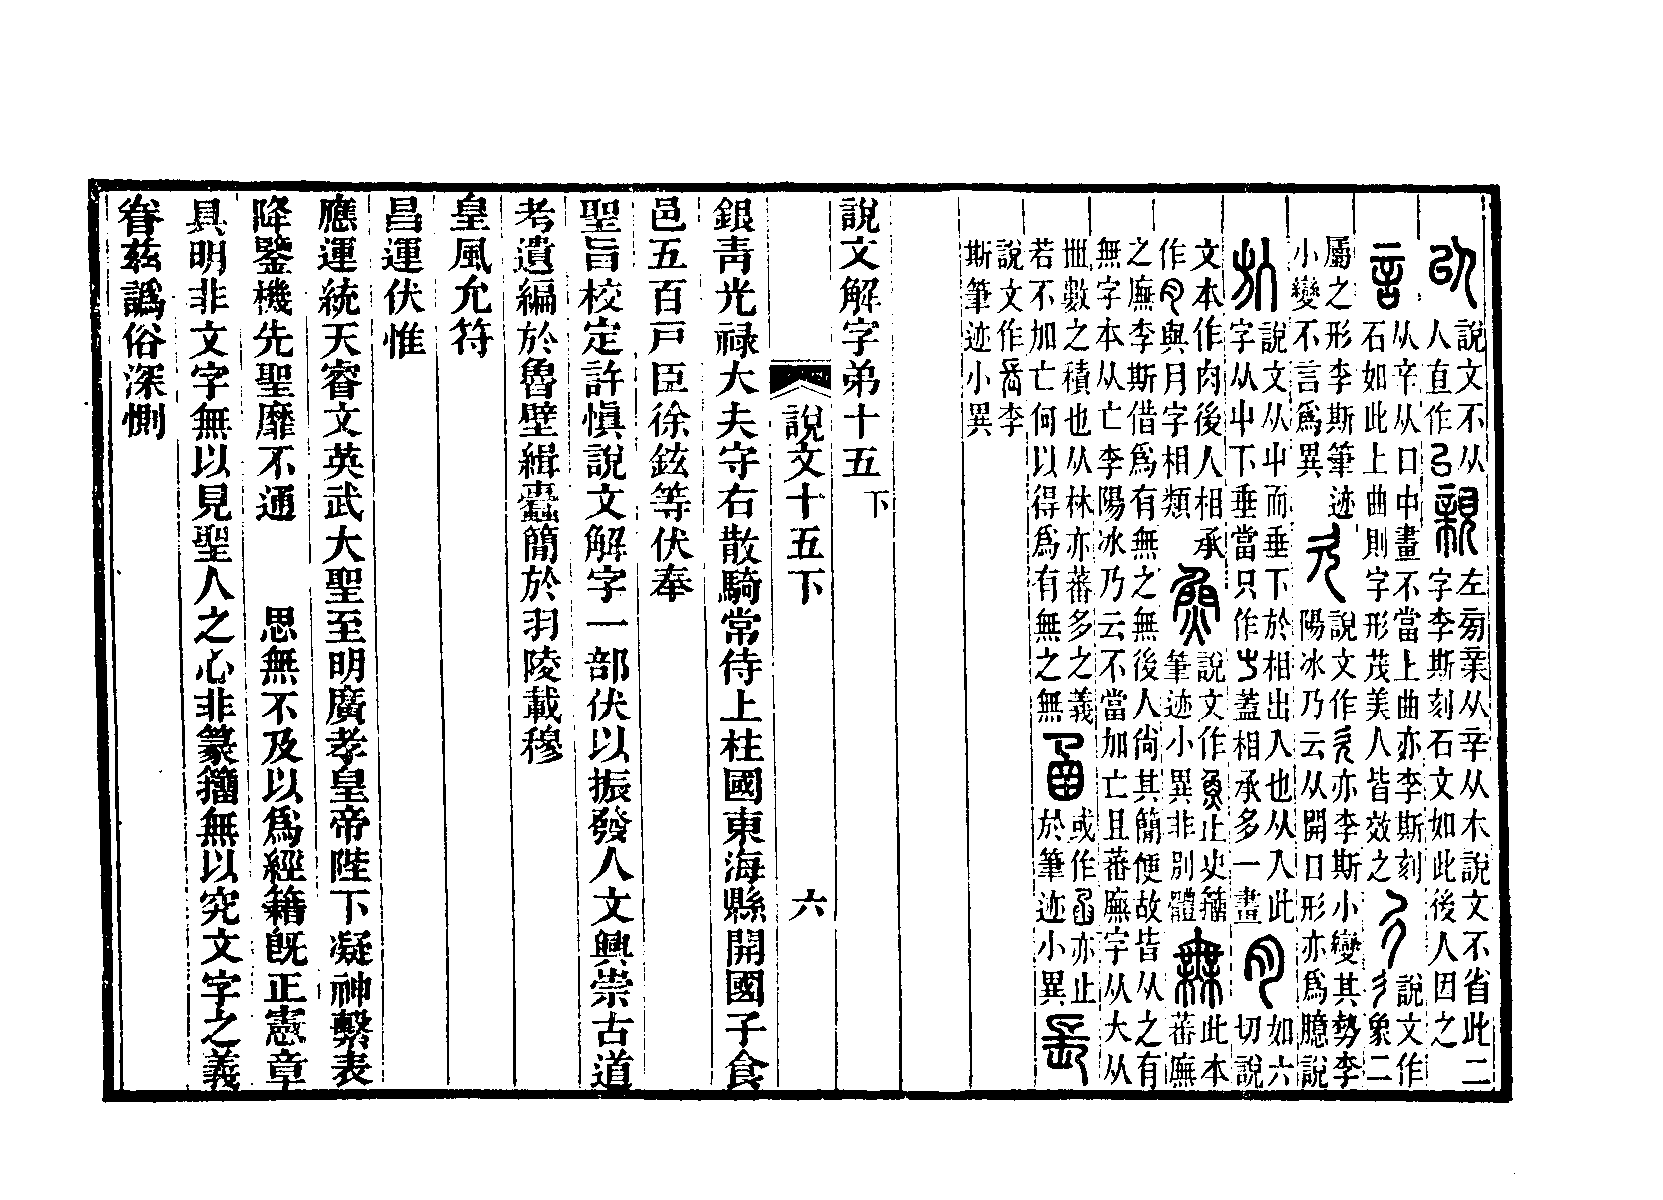 㠯說文不从人直作㠯親左㫄䇂从辛从木說文不省此二字李斯刻石文如此後人因之
言从辛从口中畫不當上曲亦李斯刻石如此上曲則字形茂美人皆效之說文作象二
屬之形李斯筆迹小變不言爲異說文作亦李斯小變其勢李陽冰乃云从開口形亦爲臆說
說文从屮而垂下於相出入也从入此字从屮下垂當只作蓋相承多一畫肉如六切說
文本作肉後人相承作與月字相類魚說文作魚止史籀筆迹小異非別體無此本蕃廡
之廡李斯借爲有無之無後人尚其簡便故皆从之有無字本从亡李陽冰乃云不當加亡且蕃廡字从大从
卌數之積也从林亦蕃多之義若不加亡何以得爲有無之無或作亦止於筆迹小異
說文作李斯筆迹小異
說文解字弟十五下
說文十五下 六
銀青光祿大夫守右散騎常侍上柱國東海縣開國子食
邑五百戸臣徐鉉等伏奉
聖旨校定許愼說文解字一部伏以振發人文興崇古道
考遺編於魯壁緝蠹簡於羽陵載穆
皇風允符
昌運伏惟
應運統天睿文英武大聖至明廣孝皇帝陛下凝神繫表
降鑒機先聖靡不通 思無不及以爲經籍旣正憲章
具明非文字無以見聖人之心非篆籀無以究文字之義
眷茲譌俗深惻